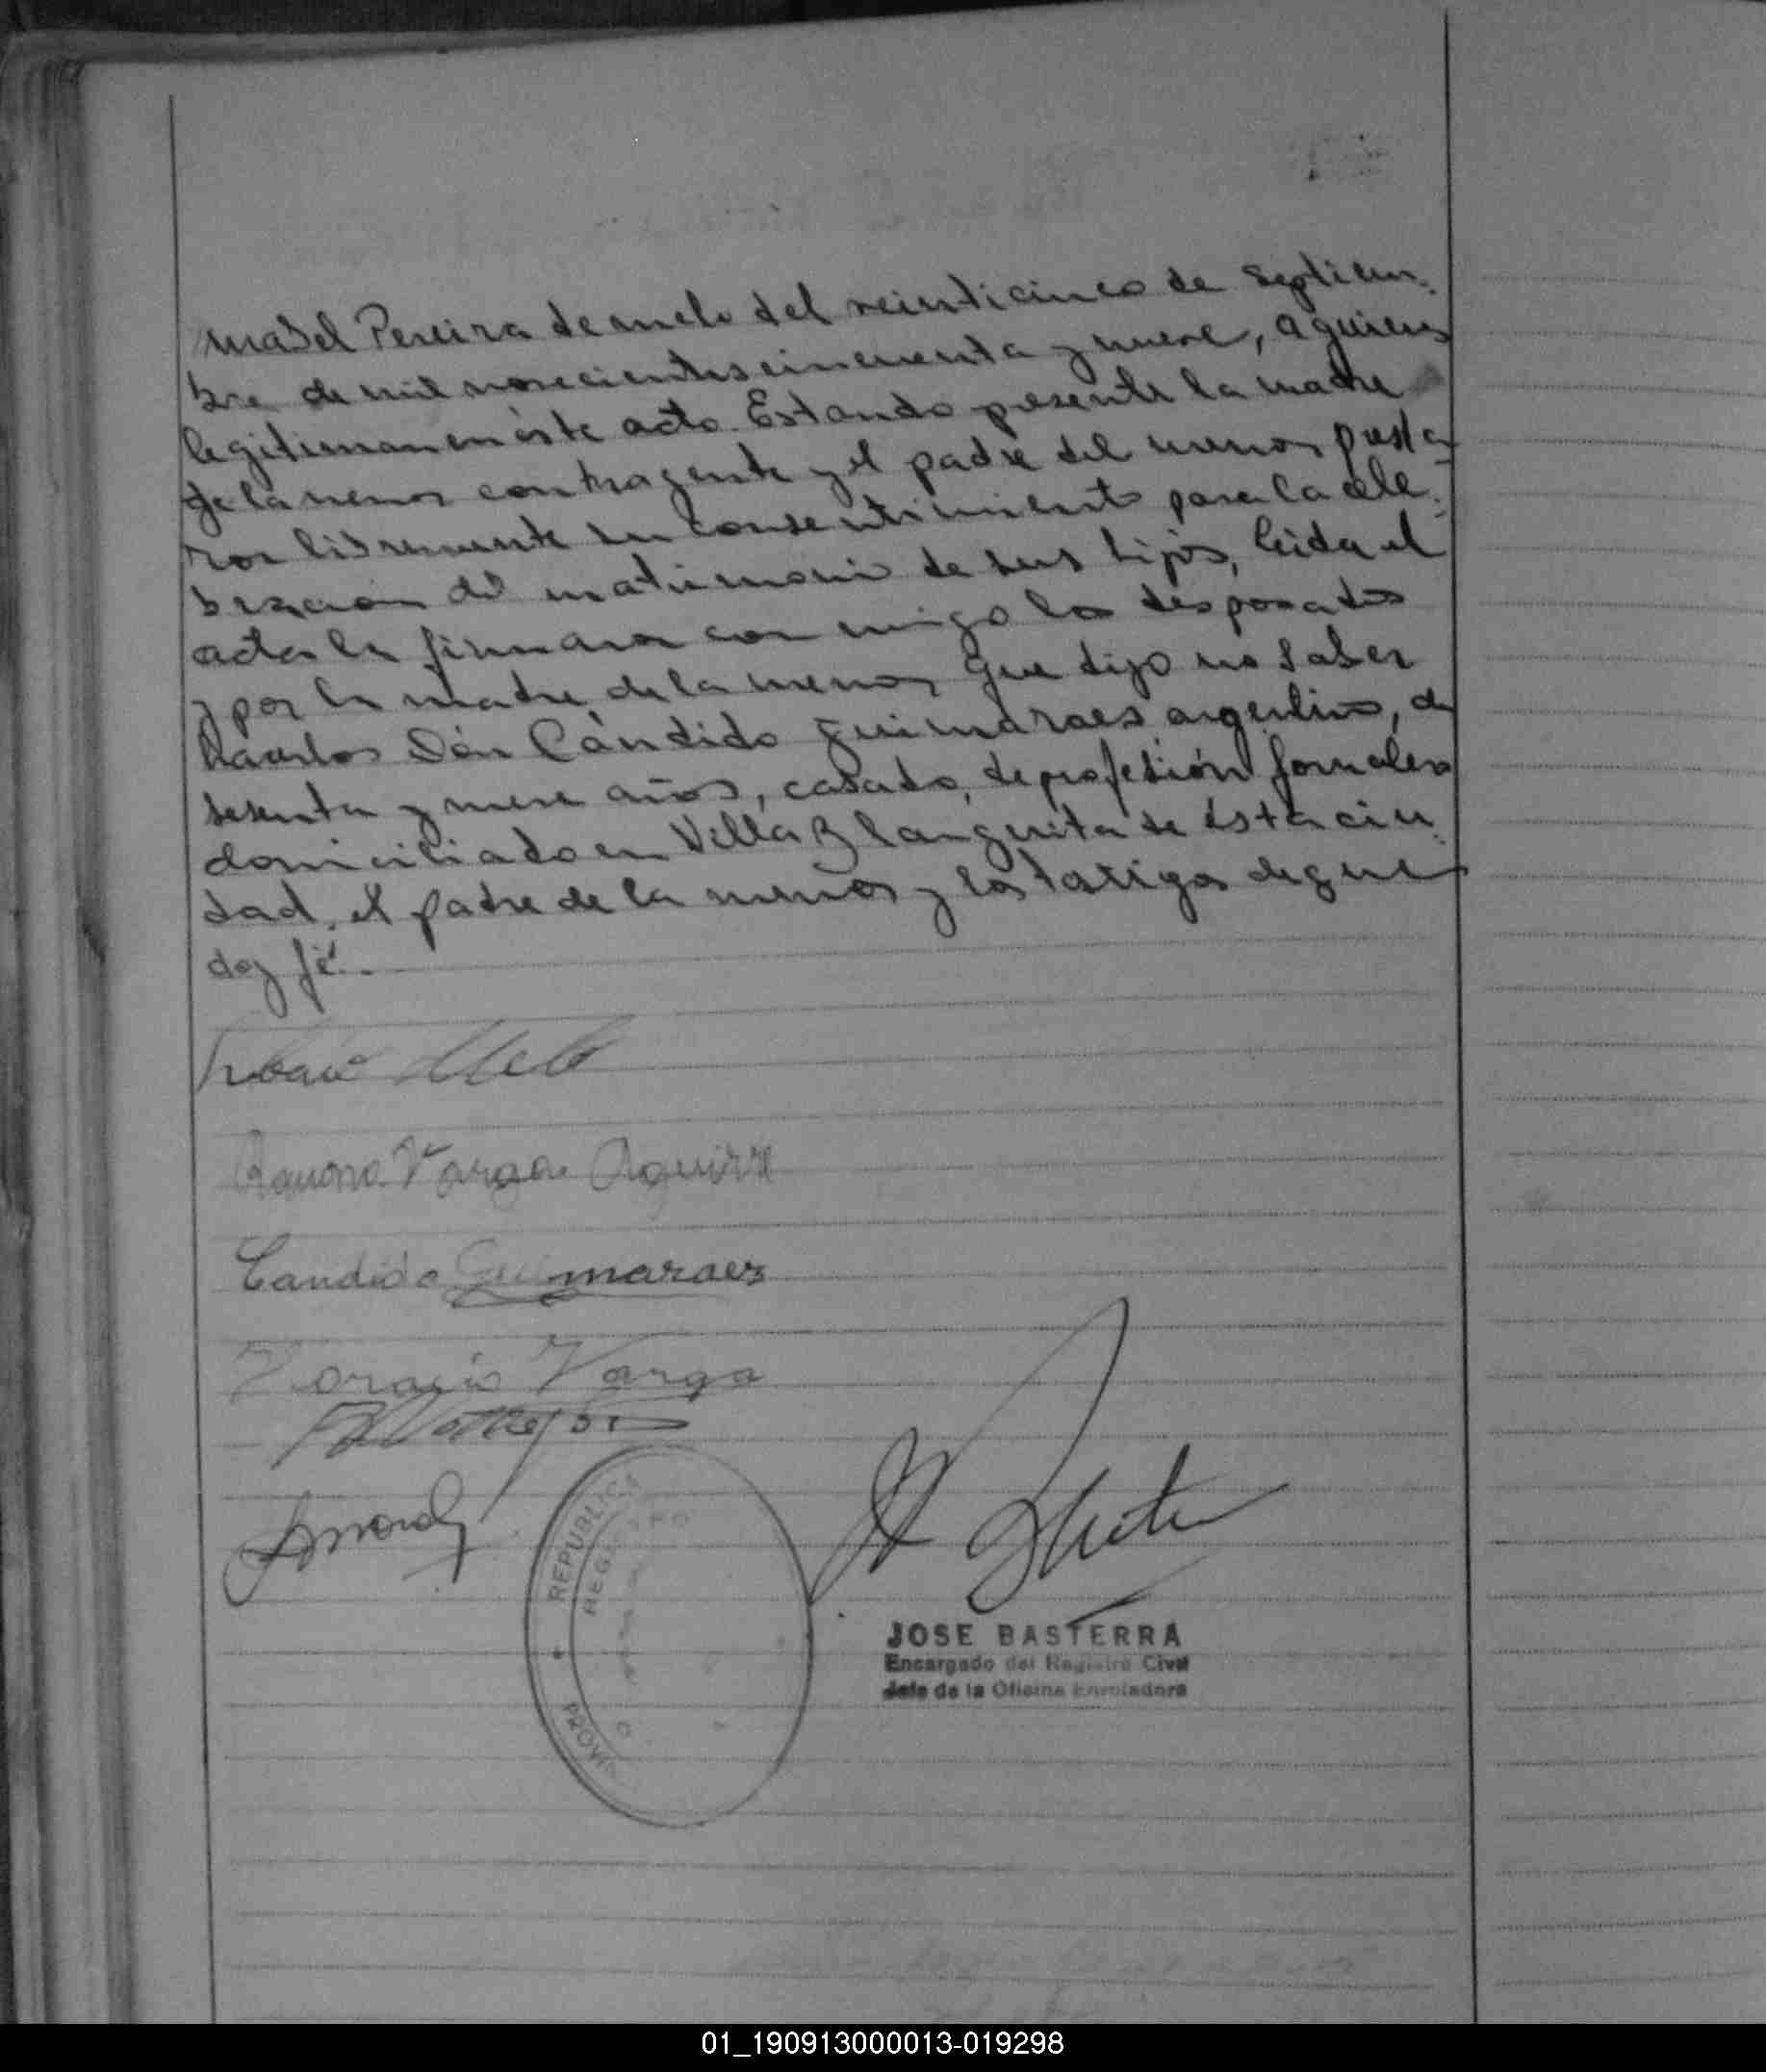 Mabel Pereira de melo del veinticinco de Septiem-
bre de mil novecientos cincuenta y nueve, a quienes
legitiman en éste acto. Estando presente la madre
de la menor contrayente y el padre del menor presta
ron libremente su consentimiento para la cele-
bración del matrimonio de sus hijos, leida el
acta la firmaron con migo los desposados
y por la madre de la menor que dijo no saber
hacerlos Dón Cándido Guimaraes, argentino, de
sesenta y nueve años, casado, de profesión jornalero
domiciliado en Villa Blanquita de ésta ciu-
dad, el padre de la menor y los testigos de que
doy fé.-
Melo
Ramona Varga Aguirre
Candido Guimaraes
Horacio Varga
REPUBLICA
REGISTRO
PROVI
JOSE BASTERRA
Encargado del Registro Civil
Jefe de la Oficina Enroladora
01_190913000013-019298